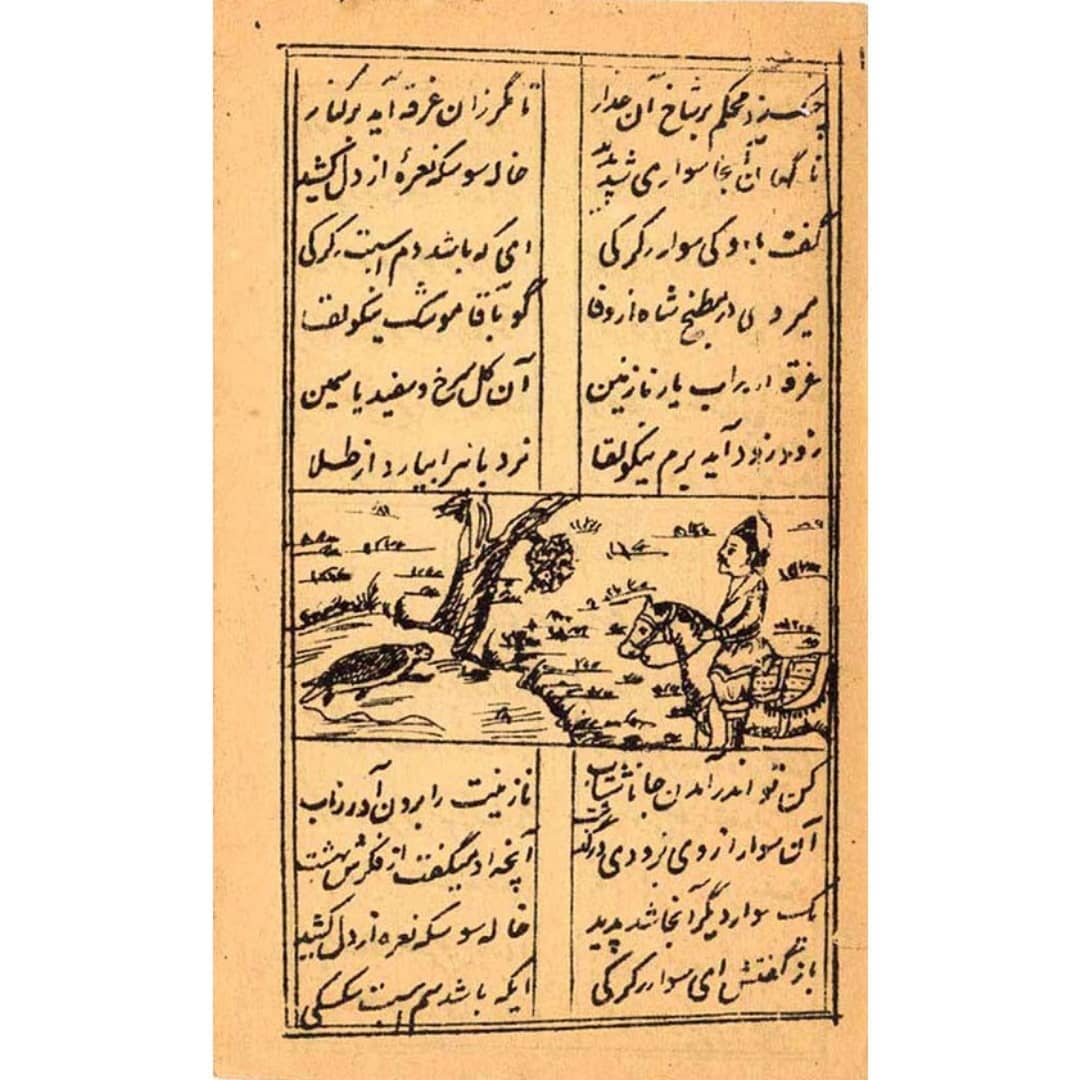 چسبید محکم بر شاخ آن عذار تا مگر زان غرقه آید بر کنار
ناگهان آنجا سواری شد پدید خاله سوسکه نعرهٔ از دل کشید
گفت با او کی سوار رکرکی ای که باشد دم اسبت رکرکی
میروی در مطبخ شاه از وفا گو بآقا موشک نیکولقا
غرقه در آب یار نازنین آن گل سرخ و سفید یاسمین
زود زود آید برم نیکولقا نردبانیرا بیارد از طلا
کن تو اندر آمدن جانا شتاب نازنینت را برون آور ز آب
آن سوار از وی بزودی درگذشت آنچه او میگفت از فکرش بهشت
یک سوار دیگر آنجا شد پدید خاله سوسکه نعره از دل کشید
باز گفتش ای سوار رکرکی ایکه باشد سم اسبت سکسکی